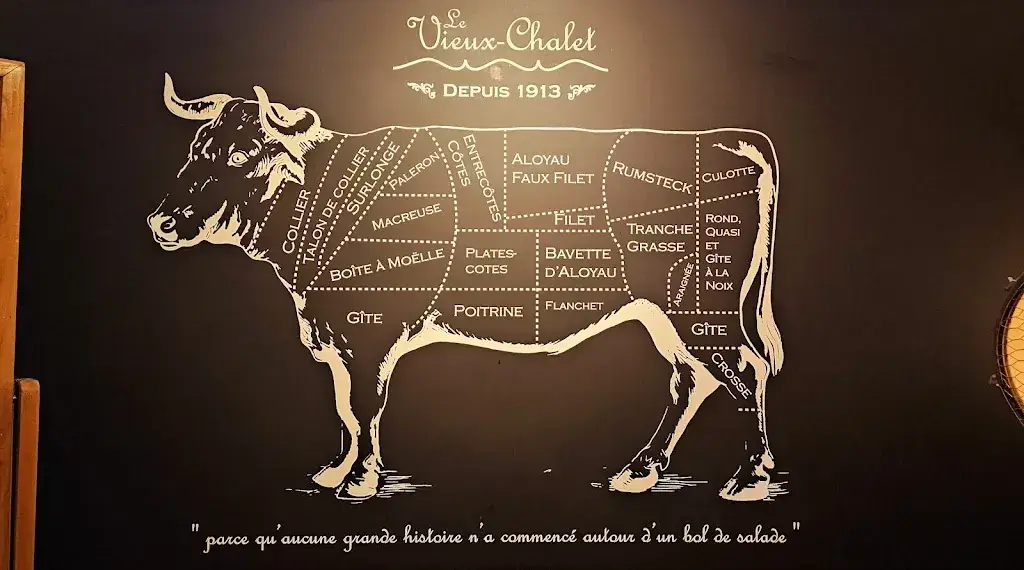 Le
Vieux-Chalet
Depuis 1913
Collier
Talon de collier
Surlonge
Paleron
Macreuse
Boîte à Moëlle
Gîte
Entrecôtes
Côtes
Aloyau
Faux Filet
Filet
Plates-
cotes
Bavette
d'Aloyau
Poitrine
Flanchet
Rumsteck
Culotte
Tranche
Grasse
Araignée
Rond,
Quasi
et
Gîte
à la
Noix
Gîte
Crosse
"parce qu'aucune grande histoire n'a commencé autour d'un bol de salade"